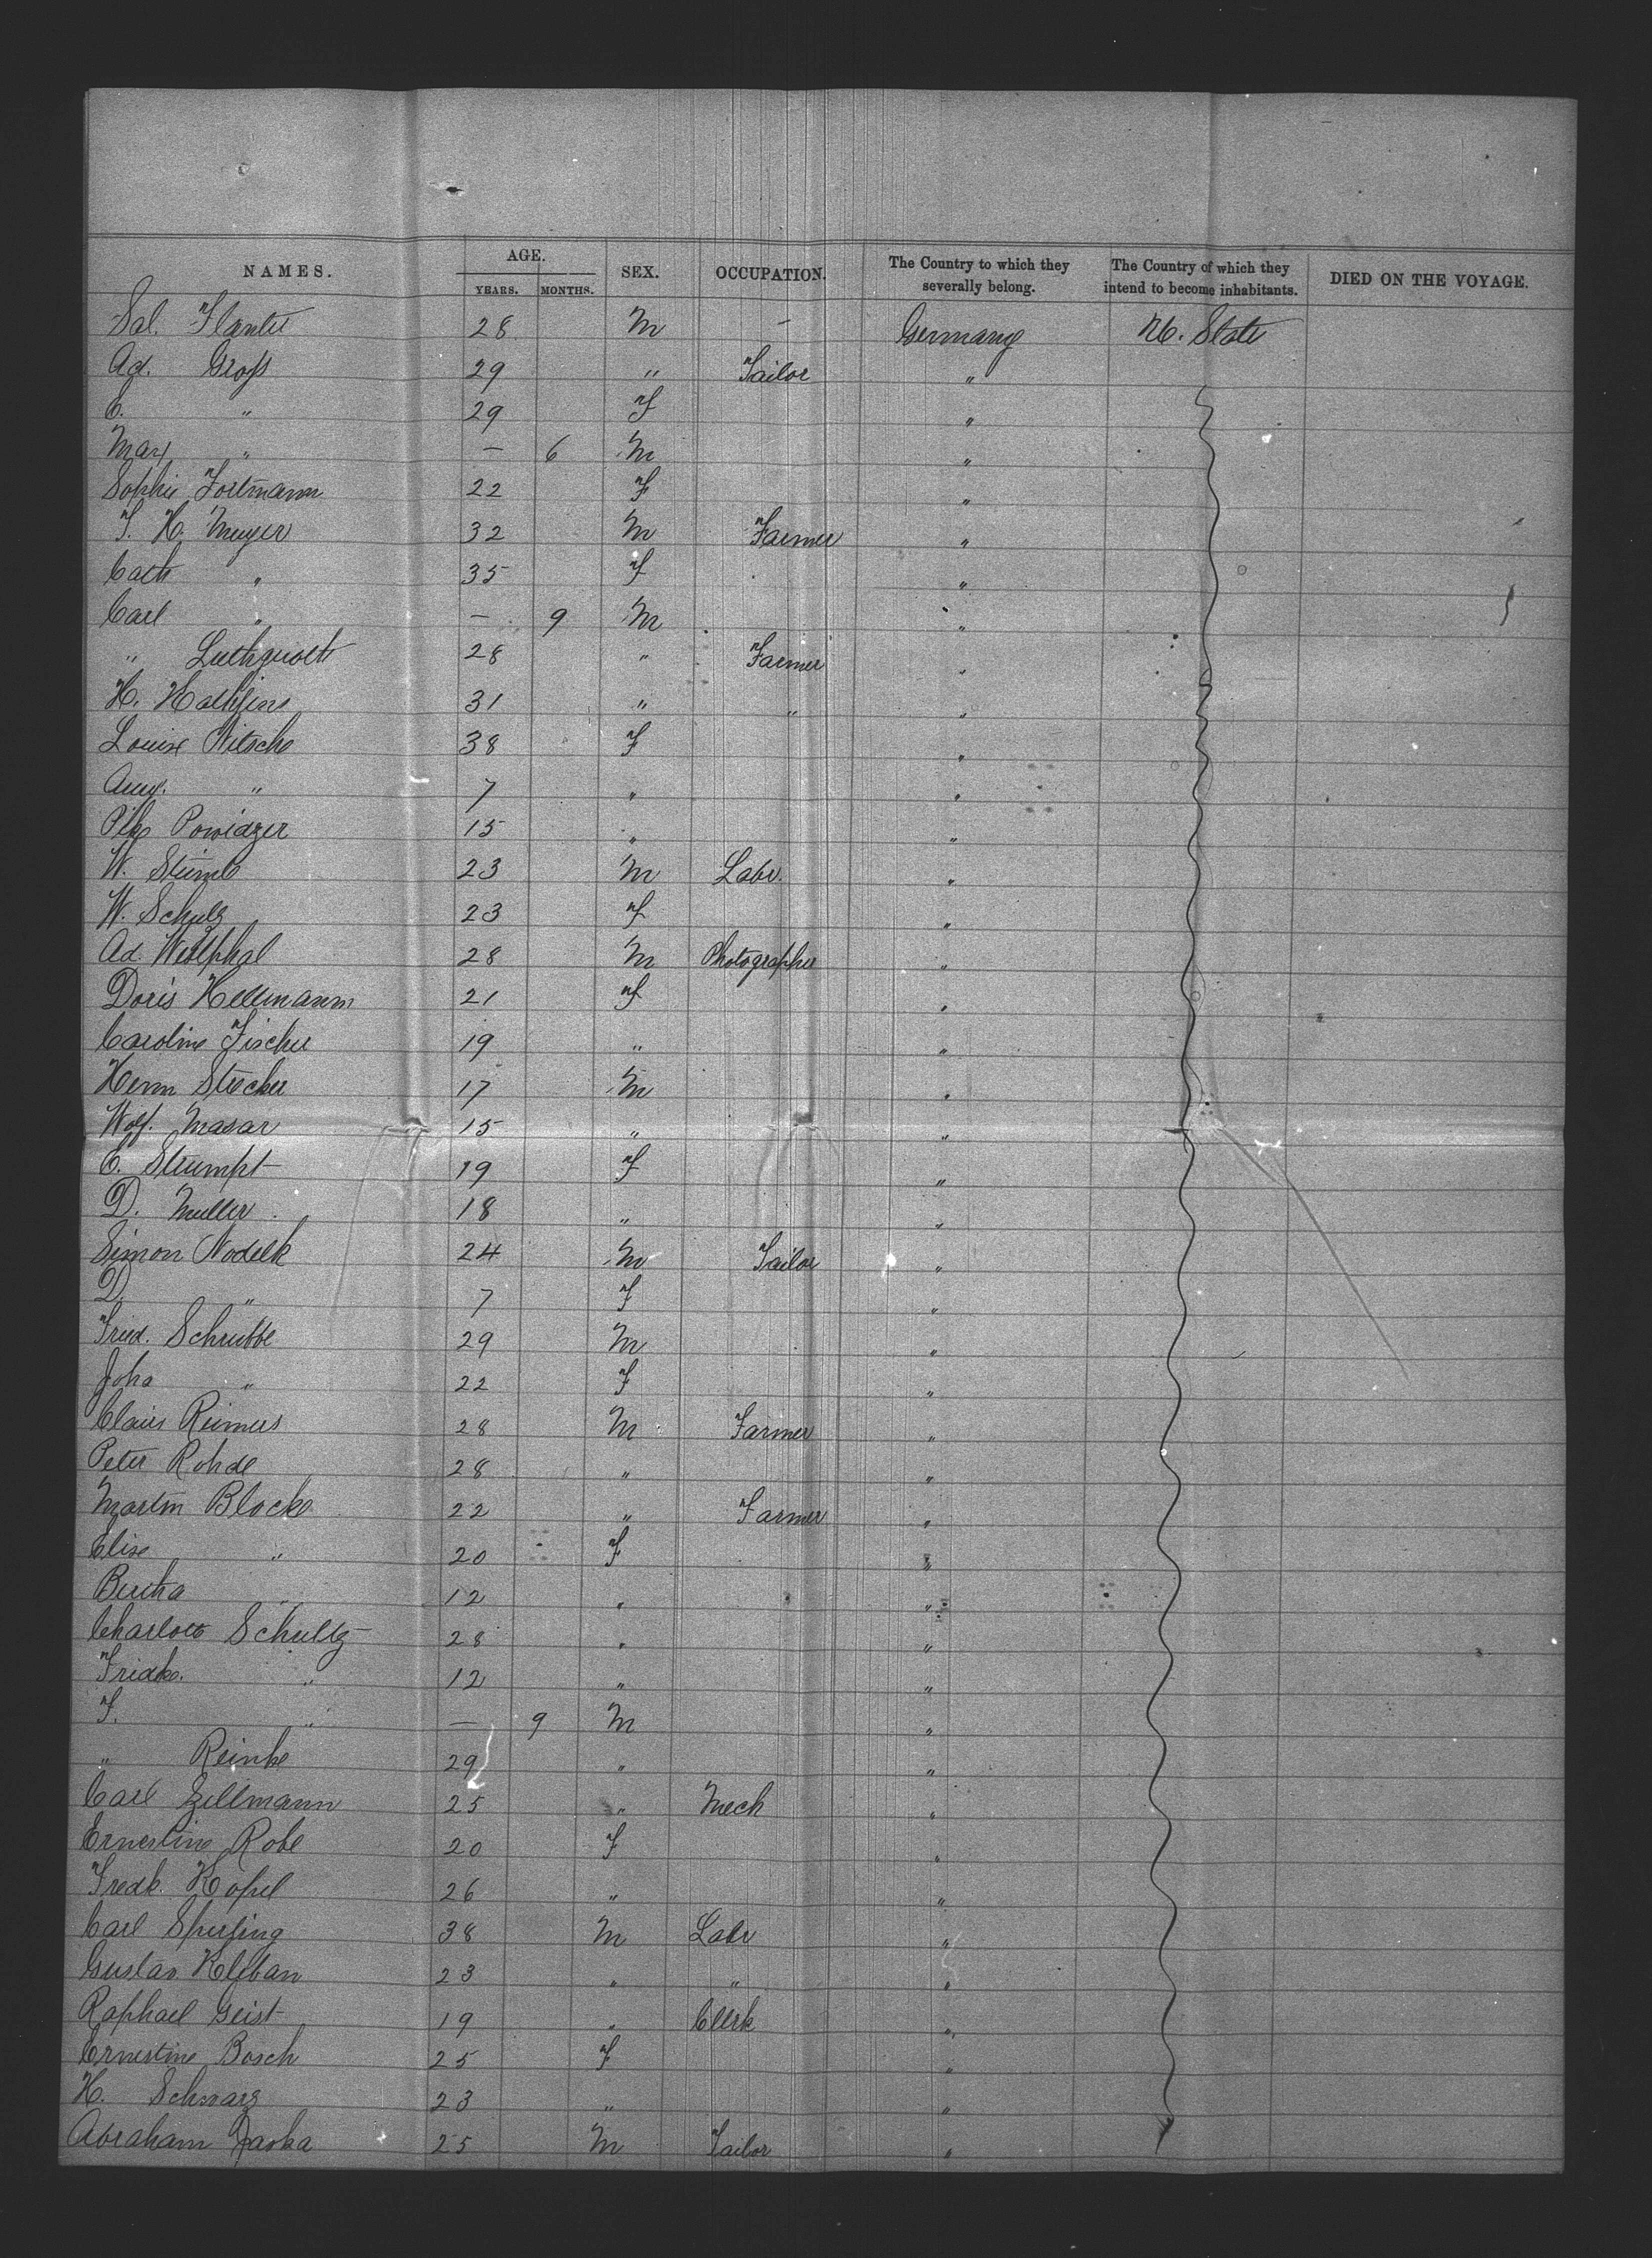 NAMES. AGE. SEX. OCCUPATION. The Country to which they severally belong. The Country of which they intend to become inhabitants. DIED ON THE VOYAGE.
YEARS. MONTHS.
Sal. 28 M - Germany U. State
Ad. Groß 29 " Tailor "
C. " 29 F "
Max " — 6 M "
Sophie Fortmann 22 F "
F. H. Meyer 32 M Farmer "
Cath " 35 F "
Carl " — 9 M "
" 28 " Farmer "
H. 31 " " "
Louise Nitsche 38 F "
Aug. " 7 " "
Powidzer 15 " "
W. 23 M Labr. "
W. Schulz 23 F "
Ad. Westphal 28 M Photographer "
Doris Hellmann 21 F "
Caroline Fischer 19 " "
Herm Strecker 17 M "
Wolf. Masar 15 " "
C. Strumpt 19 F "
D. Muller 18 " "
Simon Nodelk 24 M Tailor "
D. " 7 F "
Fried. Schrubbe 29 M "
Joha " 22 F "
Claus Reimers 28 M Farmer "
Peter Rohde 28 " "
Martin Blocke 22 " Farmer "
Elise " 20 F "
Bertha " 12 " "
Charlotte Schultz 28 " "
Friedke. " 12 " "
F. " — 9 M "
" Reinke 29 " "
Carl Zellmann 25 " Mech "
Ernestine Robe 20 F "
Fredk. Kopel 26 " "
Carl Sperling 38 M Labr "
Gustav Kleban 23 " " "
Raphael Geist 19 " Clerk "
Ernestine Bosch 25 F "
H. Schwarz 23 " "
Abraham Jaska 25 M Tailor "